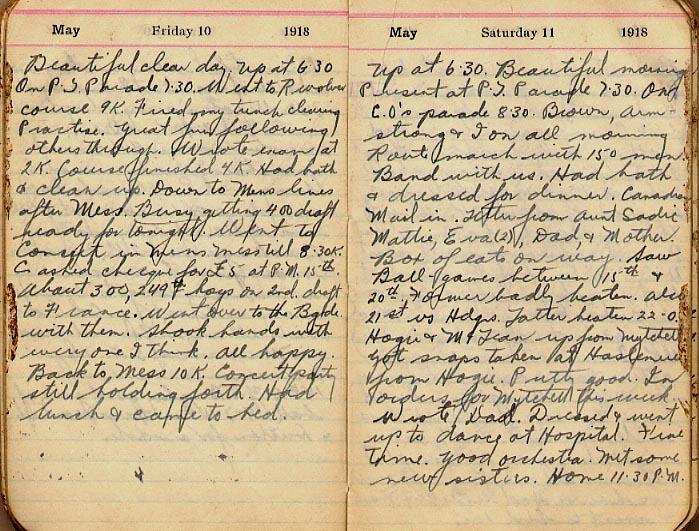 May Friday 10 1918
Beautiful clear day up at 6.30
On P.T. Parade 7.30. Went to Revolver
course 9K. Fired my trench clearing
Practise. Great fun following
others through. Wrote exam at
2K. Course finished 4K. Had bath
& clean up. Down to Mens lines
after Mess. Busy getting 400 draft
ready for tonight. Went to
Concert in Mens mess till 8.30K.
Cashed cheque for £5 at P.M. 15th.
About 300, 249th boys on 2nd. draft
to France. Went over to the Bgde.
with them. Shook hands with
every one I think. All happy.
Back to Mess 10K. Concert party
still holding forth. Had
lunch & came to bed.
May Saturday 11 1918
Up at 6.30. Beautiful morning
Present at P.T. Parade 7.30. On
C.O's parade 8.30. Brown, Arm-
strong & I on all morning
Route march with 150 men.
Band with us. Had bath
& dressed for dinner. Canadian
Mail in. Letter from Aunt Sadie
Mattie, Eva(2), Dad, & Mother.
Box of eats on way. Saw
Ball games between 15th &
20th, Former badly beaten. Also
21st vs Hdqs. Latter beaten 22-0.
Hogie & McLean up from Mytchett
Got snaps taken at Haslemere
from Hogie. Pretty good. In
orders for Mytchett this week.
Wrote Dad. Dressed & went
up to dance at Hospital. Fine
time. Good orchestra. Met some
new sisters. Home 11.30 P.M.